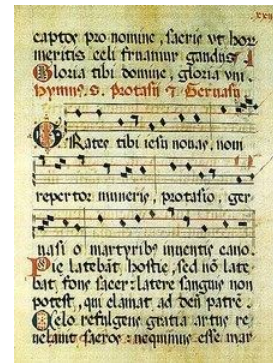 captos pro nomine, sacris ut hor
meritis celi fruamur gaudiis
Gloria tibi domine, gloria uni
Hymnus. s. Protasii ⁊ Gervasii.
GRates tibi iesu novas, novi
repertor muneris, protasio, ger
nasi o martyribꝰ inventis cano.
Pie latebāt hostie, sed nō late
bat fons sacer: latere sanguis non
potest, qui clamat ad deū patrē.
Celo refulgens gratia artus re
velavit sacros: nequimus esse mar